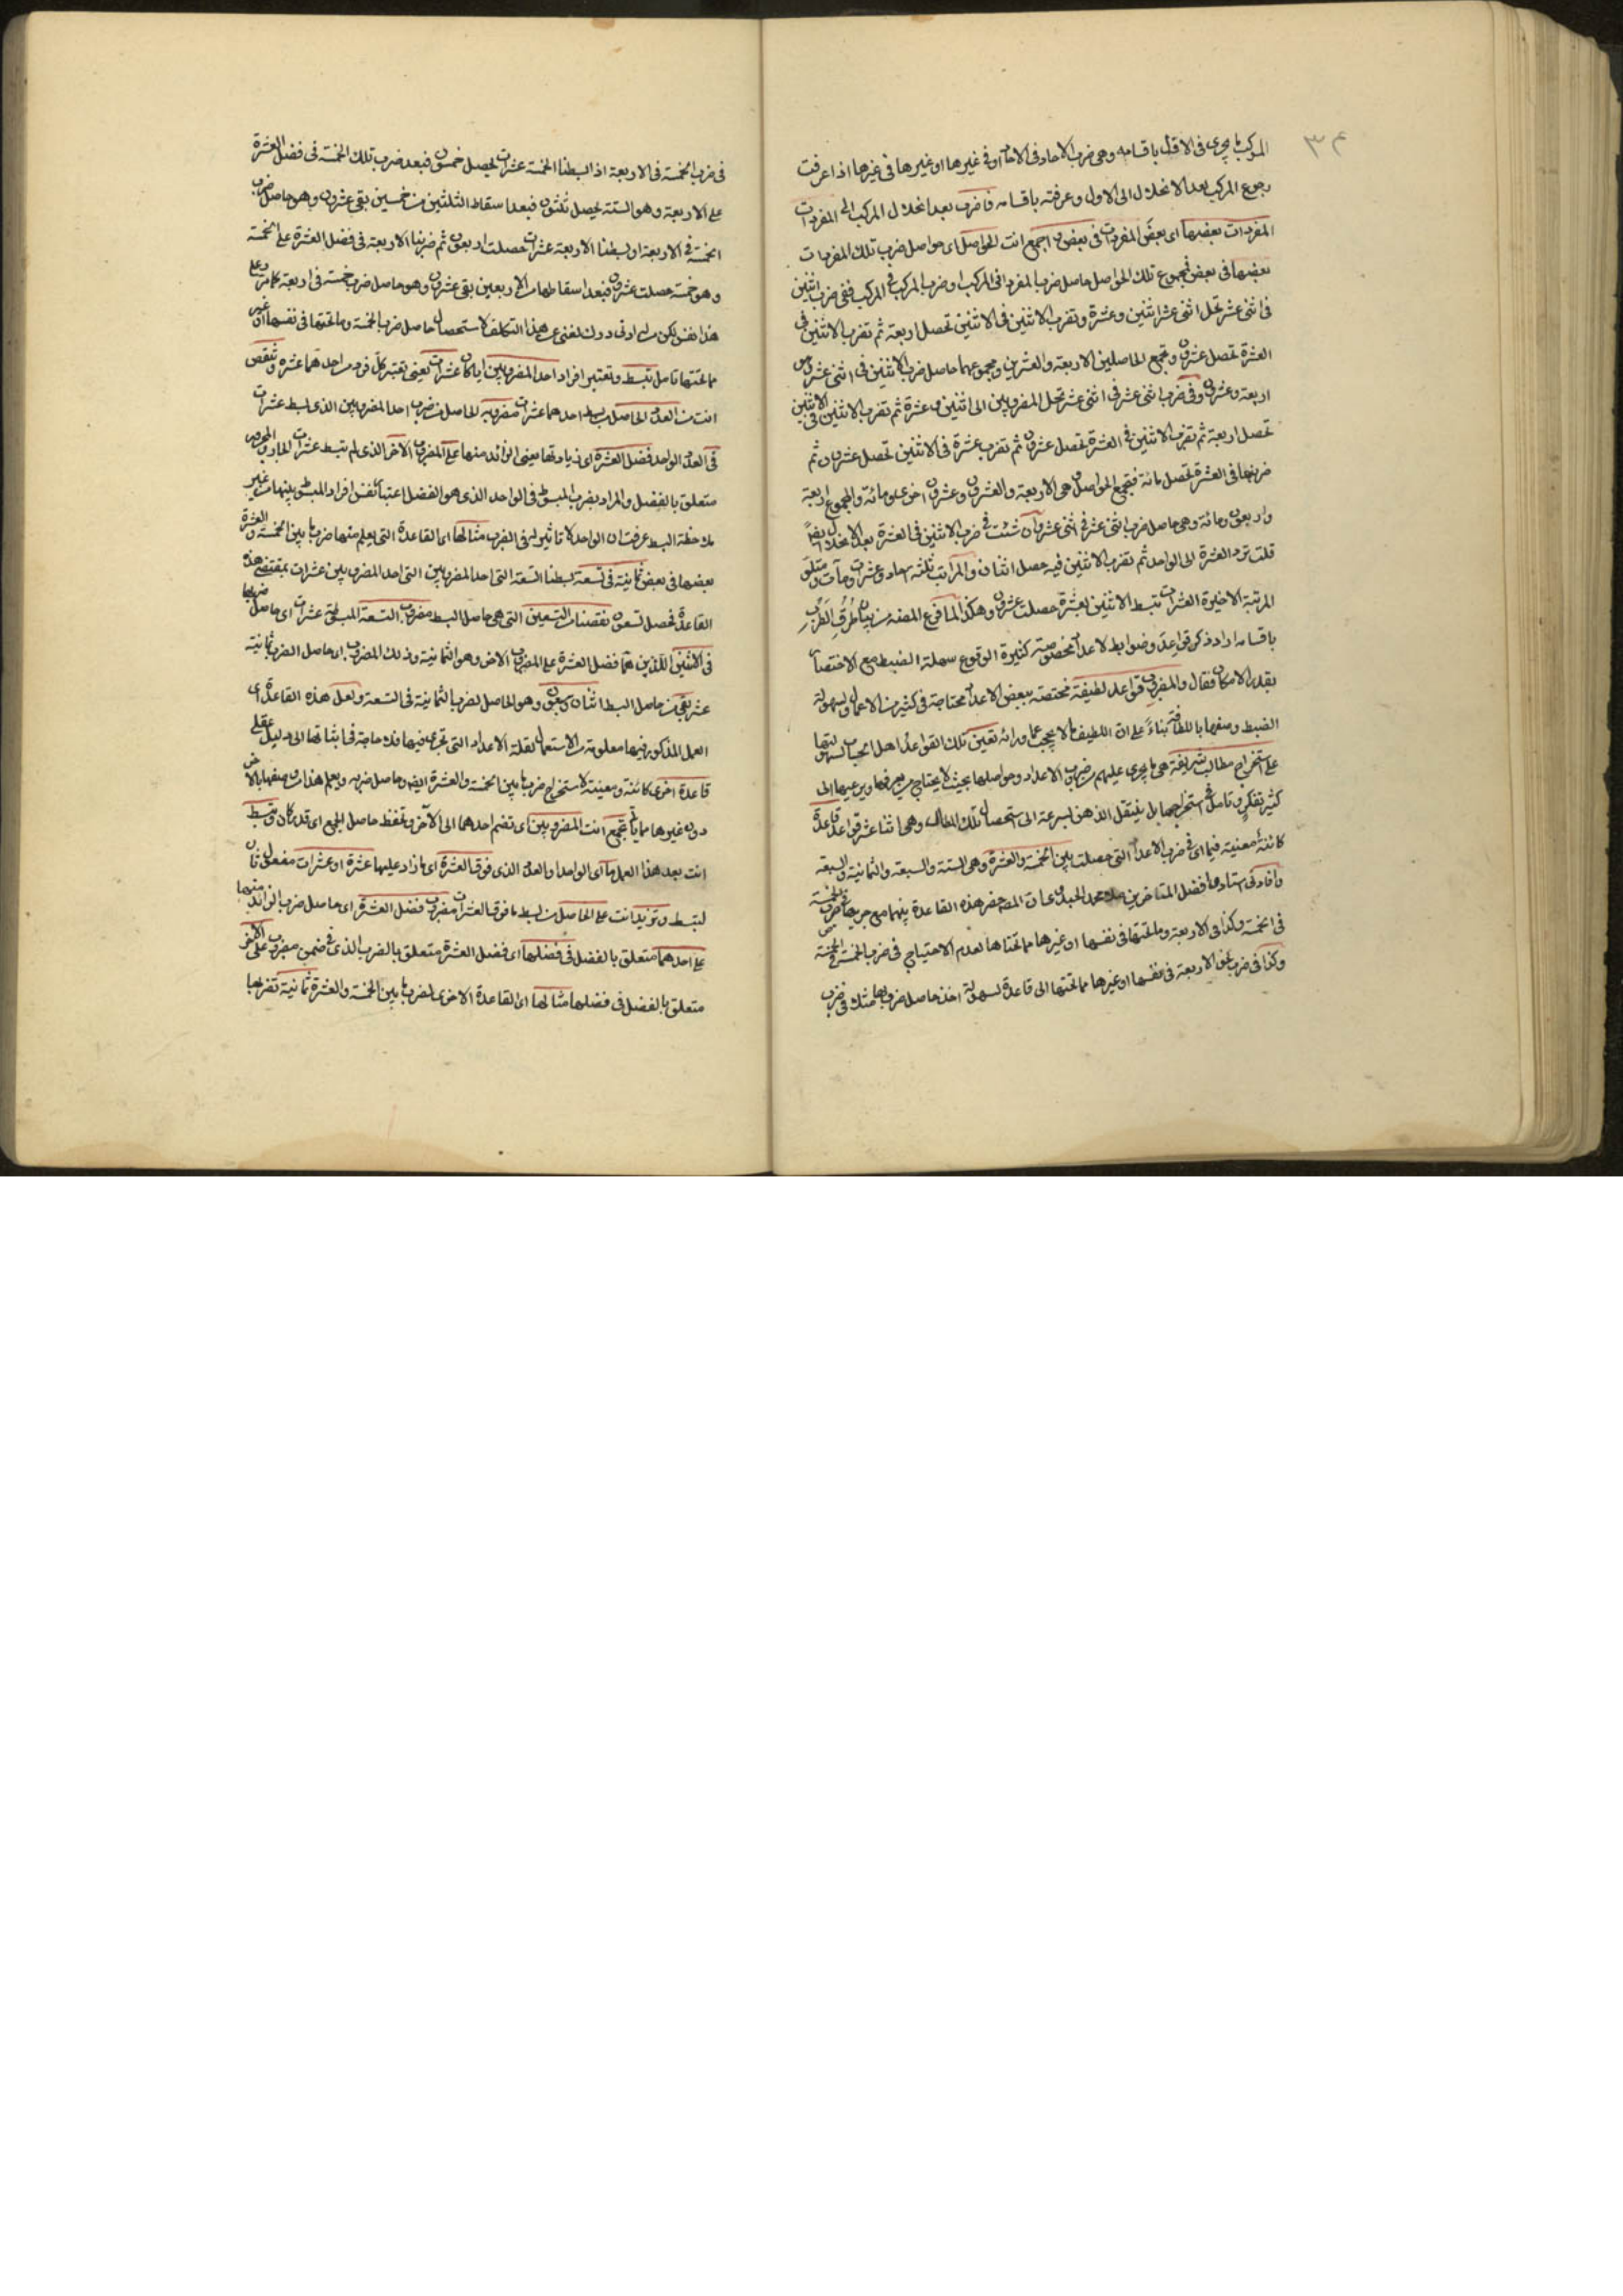 ٣٤
المركب ما يجرى فى الاول باقسامه وهى ضرب الاحاد فى الاحاد او فى غيرها او غيرها فى غيرها اذا عرفت
رجوع المركب بعد الانحلال الى الاول وعرفته باقسامه فاضرب بعد انحلال المركب الى المفردات
المفردات بعضها اى بعض المفردات فى بعض واجمع انت الحواصل اى حواصل ضرب تلك المفردات
بعضها فى بعض فمجموع تلك الحواصل حاصل ضرب المفرد فى المركب او ضرب المركب فى المركب ففى ضرب اثنين
فى اثنى عشر تحل اثنى عشر اثنين وعشرة وتضرب الاثنين فى الاثنين تحصل اربعة ثم تضرب الاثنين فى
العشرة تحصل عشرون وتجمع الحاصلين الاربعة والعشرين ومجموعهما حاصل ضرب الاثنين فى اثنى عشر وهو
اربعة وعشرون وفى ضرب اثنى عشر فى اثنى عشر تحل المضروبين الى اثنين وعشرة ثم تضرب الاثنين فى الاثنين
تحصل اربعة ثم تضرب الاثنين فى العشرة تحصل عشرون ثم تضرب عشرة فى الاثنين تحصل عشرون ثم
ضربها فى العشرة تحصل مائة فتجمع الحواصل هى الاربعة والعشرون وعشرون اخرى ومائة والمجموع اربعة
واربعون ومائة وهى حاصل ضرب اثنى عشر فى اثنى عشر وان شئت فى ضرب الاثنين فى العشرة بعد الانحلال ايضا
قلت ترد العشرة الى الواحد ثم تضرب الاثنين فيه حصل اثنان والمراتب ثلثة احاد وعشرات ومآت ومتلو
المرتبة الاخيرة العشرات تبسط الاثنين بعشرة حصلت عشرون وهكذا لما فرغ المصنف من بيان طرق الضرب
باقسامه اراد ذكر قواعد وضوابط لاعداد مخصوصة كثيرة الوقوع سهلة الضبط مع الاختصار
بقدر الامكان فقال والمضرب قواعد لطيفة مختصة ببعض الاعداد محتاجة فى كثير من الاعمال ولسهولة
الضبط وصفها باللطافة بناء على ان اللطيف ما لا يحجب عما ورائه تعين تلك القواعد اهل الحساب لسهولتها
على استخراج مطالب شريفة هى ما يجرى عليهم من ضرب الاعداد وحواصلها بحيث لا يحتاج من يعرفها ويرعيها الى
كثير تفكر وتامل فى استخراجها بل ينتقل الذهن بسرعة الى استحصال تلك المطالب وهى اثنا عشر قواعد قاعدة
كائنة معنية فيما اى فى ضرب الاعداد التى حصلت بين الخمسة والعشرة وهى الستة والسبعة والثمانية والتسعة
وافادنى استادها افضل المتاخرين ملا محمد الجبلى عان المص حصر هذه القاعدة بينهما مع جريانها فى ضرب الخمسة
فى الخمسة وكذا فى الاربعة وما تحتها فى نفسها او غيرها مما تحتاها لعدم الاحتياج فى ضرب الخمسة فى الخمسة
وكذا فى ضرب نحو الاربعة فى نفسها او غيرها مما تحتها الى قاعدة لسهولة اخذ حاصل ضربها مثلا فى ضرب
فى ضرب الخمسة فى الاربعة اذا بسطنا الخمسة عشرات يحصل خمسون فبعد ضرب تلك الخمسة فى فضل العشرة
على الاربعة وهو الستة يحصل ثلثون فبعد اسقاط الثلثين من خمسين بقى عشرون وهو حاصل ضرب
الخمسة فى الاربعة او بسطنا الاربعة عشرات حصلت اربعون ثم ضربنا الاربعة فى فضل العشرة على الخمسة
وهو خمسة حصلت عشرون فبعد اسقاطها من الاربعين بقى عشرون وهو حاصل ضرب خمسة فى اربعة كما مر وعلى
هذا فقس لكن من له ادنى درك لغنى عن هذا التكلف لاستحصال حاصل ضرب الخمسة وما تحتها فى نفسها او غير
مما تحتها تامل تبسط وتعتبر افراد احد المضروبين ايا كان عشرات يعنى تعتبر كل فرد من احدهما عشرة وتنقص
انت من العدد الحاصل ببسط احدهما عشرات مضروبه الحاصل من ضرب احد المضروبين الذى بسط عشرات
فى العدد الواحد فضل العشرة اى زيادتها يعنى الزائد منها على المضروب الاخر الذى لم تبسط عشرات الجار والمجرور
متعلق بالفضل والمراد بضرب المبسوط فى الواحد الذى هو الفضل اعتبار نفس افراد المبسوط بعينها من غير
ملاحظة البسط عرفت ان الواحد لا تاثير له فى الضرب مثالها اى القاعدة التى يعلم منها ضرب ما بين الخمسة والعشرة
بعضها فى بعض ثمانية فى تسعة بسطنا التسعة التى احد المضروبين التى احد المضروبين عشرات بمقتضى هذه
القاعدة فحصل تسعون نقصنا من التسعين التى هى حاصل البسط مضروب التسعة المبسوطة عشرات اى حاصل ضربها
فى الاثنين اللذين هما فضل العشرة على المضروب الاخر وهو الثمانية وذلك المضروب اى حاصل الضرب ثمانية
عشر بقى من حاصل البسط اثنان وسبعون وهو الحاصل لضرب الثمانية فى التسعة ولعل هذه القاعدة اى
العمل المذكور فيها معلومة من الاستعمال لقلة الاعداد التى تجرى فيها فلا حاجة فى اثباتها الى دليل عقلى
قاعدة اخرى كائنة ومعينة لاستخراج ضرب ما بين الخمسة والعشرة ايضا وحاصل ضربه ويعلم هذا من وصفها بالاخرى
دون غيرها مما ياتى تجمع انت المضروبين اى تضم احدهما الى الآخر وتحفظ حاصل الجمع اى قدر كان وتبسط
انت بعد هذا العمل ما اى الواحد او العدد الذى فوق العشرة اى ما زاد عليها عشرة او عشرات مفعول ثان
لتبسط وتزيد انت على الحاصل من بسط ما فوق العشرات مضروب فضل العشرة اى حاصل ضرب الزائد منها
على احدهما متعلق بالفضل فى فضلها اى فضل العشرة متعلق بالضرب الذى فى ضمن مضروب على الاخر
متعلق بالفضل فى فضلها مثالها اى القاعدة الاخرى لضرب ما بين الخمسة والعشرة ثمانية تضربها